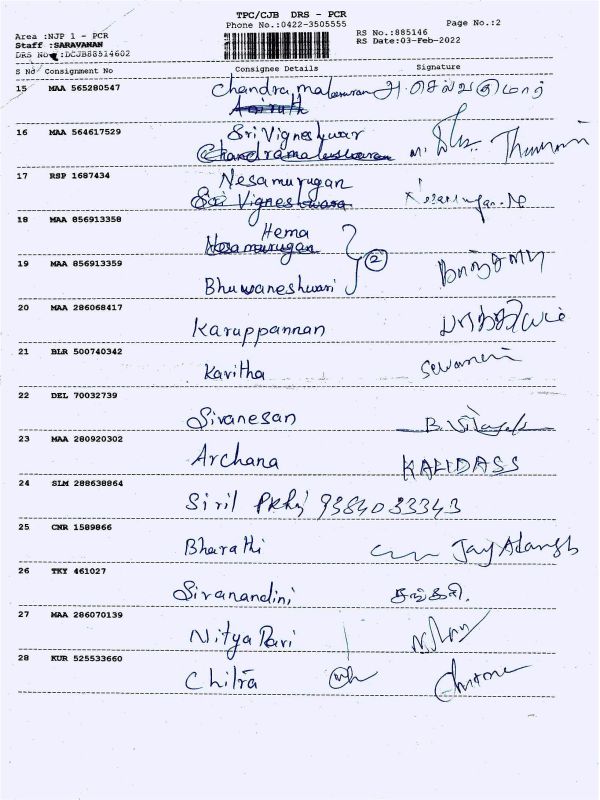 TPC/CJB DRS - PCR
Phone No.:0422-3505555
Page No.:2
Area :NJP 1 - PCR
RS No.:885146
Staff :SARAVANAN
RS Date:03-Feb-2022
DRS No :DCJB88514602
S No Consignment No Consignee Details Signature
15 MAA 565280547 அ.செல்வகுமார்
16 MAA 564617529 Sri Vigneshwar
Chandramaleswaran
17 RSP 1687434 Nesamurugan
Sri Vigneshwara
18 MAA 856913358 Hema
Nesamurugan
2
19 MAA 856913359 Bhuwaneshwari
20 MAA 286068417 Karuppannan
21 BLR 500740342 Kavitha
22 DEL 70032739 Sivanesan
23 MAA 280920302 Archana KALIDASS
24 SLM 288638864 Siril 9384033343
25 CNR 1589866 Bharathi
26 TKY 461027 Sivanandini
27 MAA 286070139 Nitya
28 KUR 525533660 Chitra